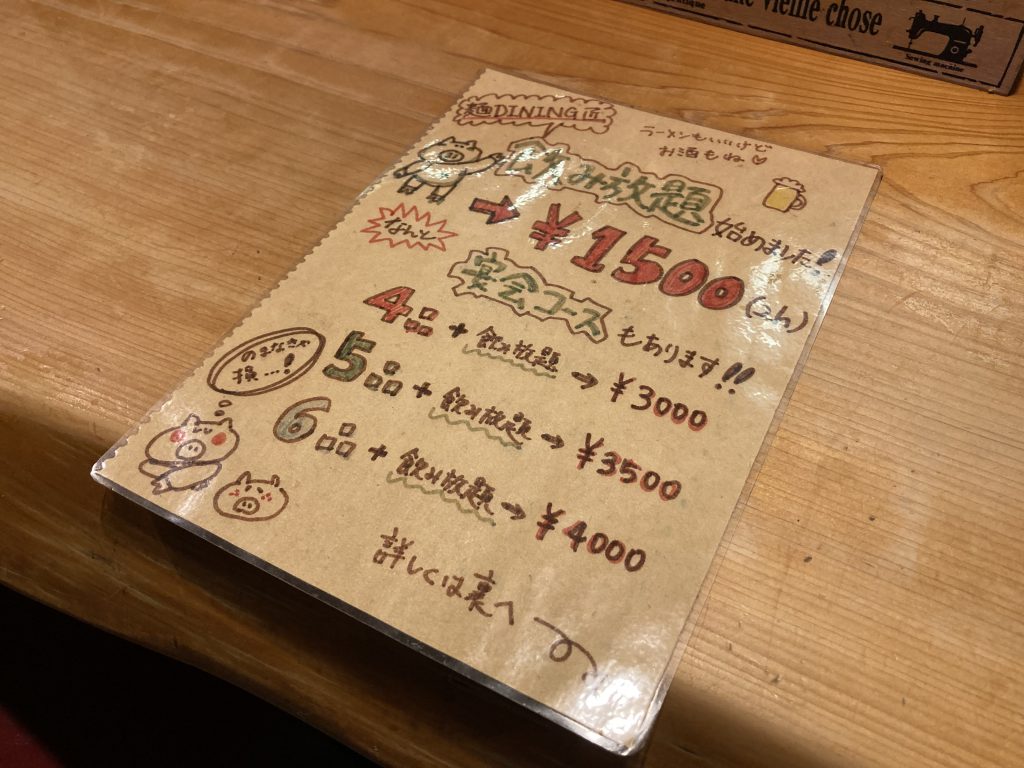 vieille chose
Sewing machine
麺DINING匠
ラーメンもいいけど
お酒もね♡
飲み放題
始めました!
なんと
→ ¥1500(2h)
宴会コース もあります!!
4品 + 飲み放題 → ¥3000
のまなきゃ
損…!
5品 + 飲み放題 → ¥3500
6品 + 飲み放題 → ¥4000
詳しくは裏へ